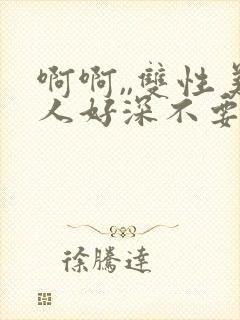 啊啊,,雙性美
人好深不要
徐騰達